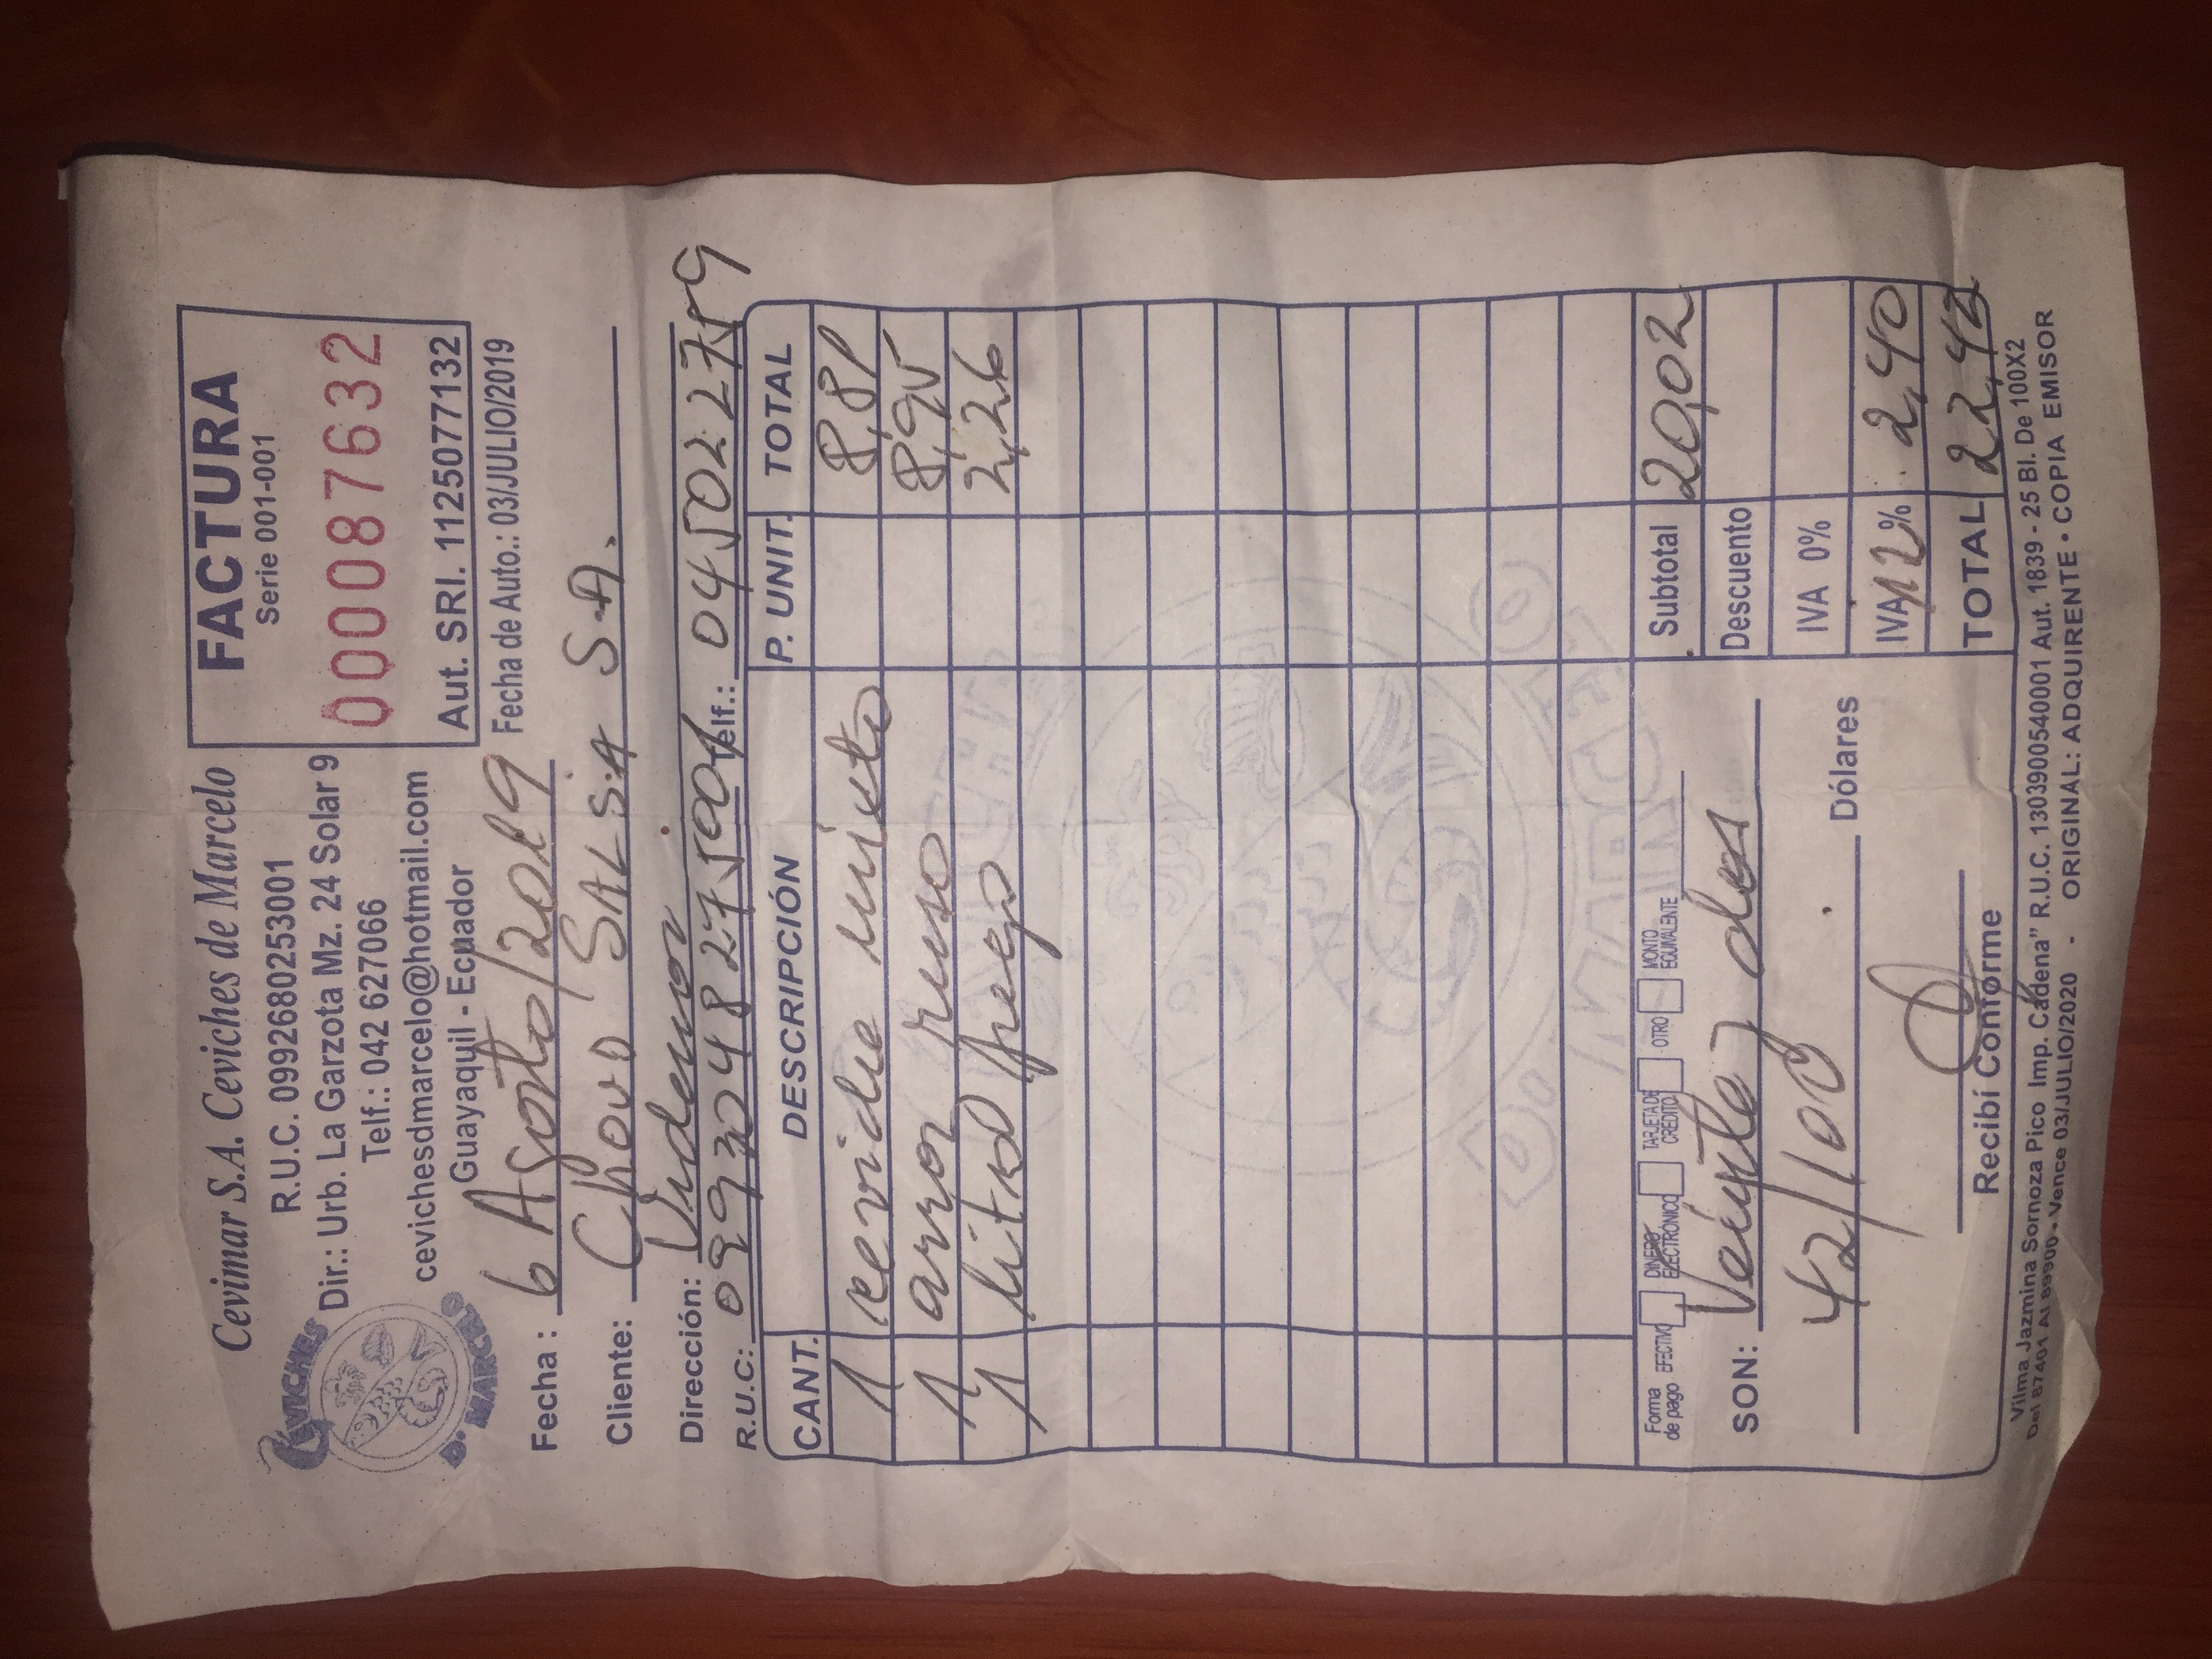 Cevimar S.A. Ceviches de Marcelo
R.U.C. 0992680253001
Dir.: Urb. La Garzota Mz. 24 Solar 9
Telf.: 042 627066
cevichesdmarcelo@hotmail.com
Guayaquil - Ecuador
CEVICHES
D' MARCELO
FACTURA
Serie 001-001
000087632
Aut. SRI. 1125077132
Fecha de Auto.: 03/JULIO/2019
Fecha: 6 Agosto/2019
Cliente: Chovo SALSA S.A.
Dirección:
R.U.C: 09932048275001 Telf.: 045022759
CANT. DESCRIPCIÓN P. UNIT. TOTAL
1 ceviche mixto 8,81
1 arroz ruso 8,95
1 litro 2,26
Forma de pago EFECTIVO DINERO ELECTRÓNICO TARJETA DE CRÉDITO OTRO MONTO EQUIVALENTE
Subtotal 20,02
SON: Veinte y dos
Descuento
42/100 Dólares
IVA 0%
IVA 12% 2,40
Recibí Conforme
TOTAL 22,42
Vilma Jazmina Sornoza Pico Imp. Cadena" R.U.C. 1303900540001 Aut. 1839 - 25 Bl. De 100X2
Del 87401 Al 89900 • Vence 03/JULIO/2020 - ORIGINAL: ADQUIRENTE • COPIA EMISOR